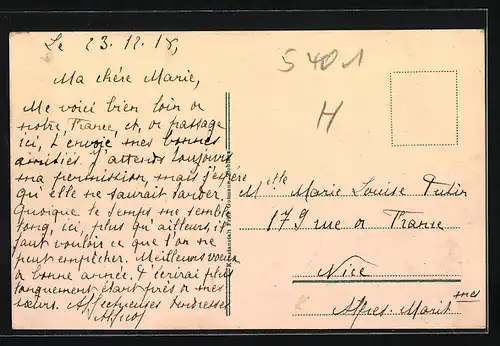 Le 23.12.18,
Ma chère Marie,
Me voici bien loin de
notre France, et, de passage
ici, t'envoie mes bonnes
amitiés. J'attends toujours
ma permission, mais j'espère
qu'elle ne saurait tarder.
Quoique le temps me semble
long, ici, plus qu'ailleurs, il
faut vouloir ce que l'on ne
peut empêcher. Meilleurs vœux
de bonne année. T'écrirai plus
longuement étant près de mes
sœurs. Affectueuses tendresses
5401
H
Melle Marie Louise
179 rue de France
Nice
Alpes-Marit mes